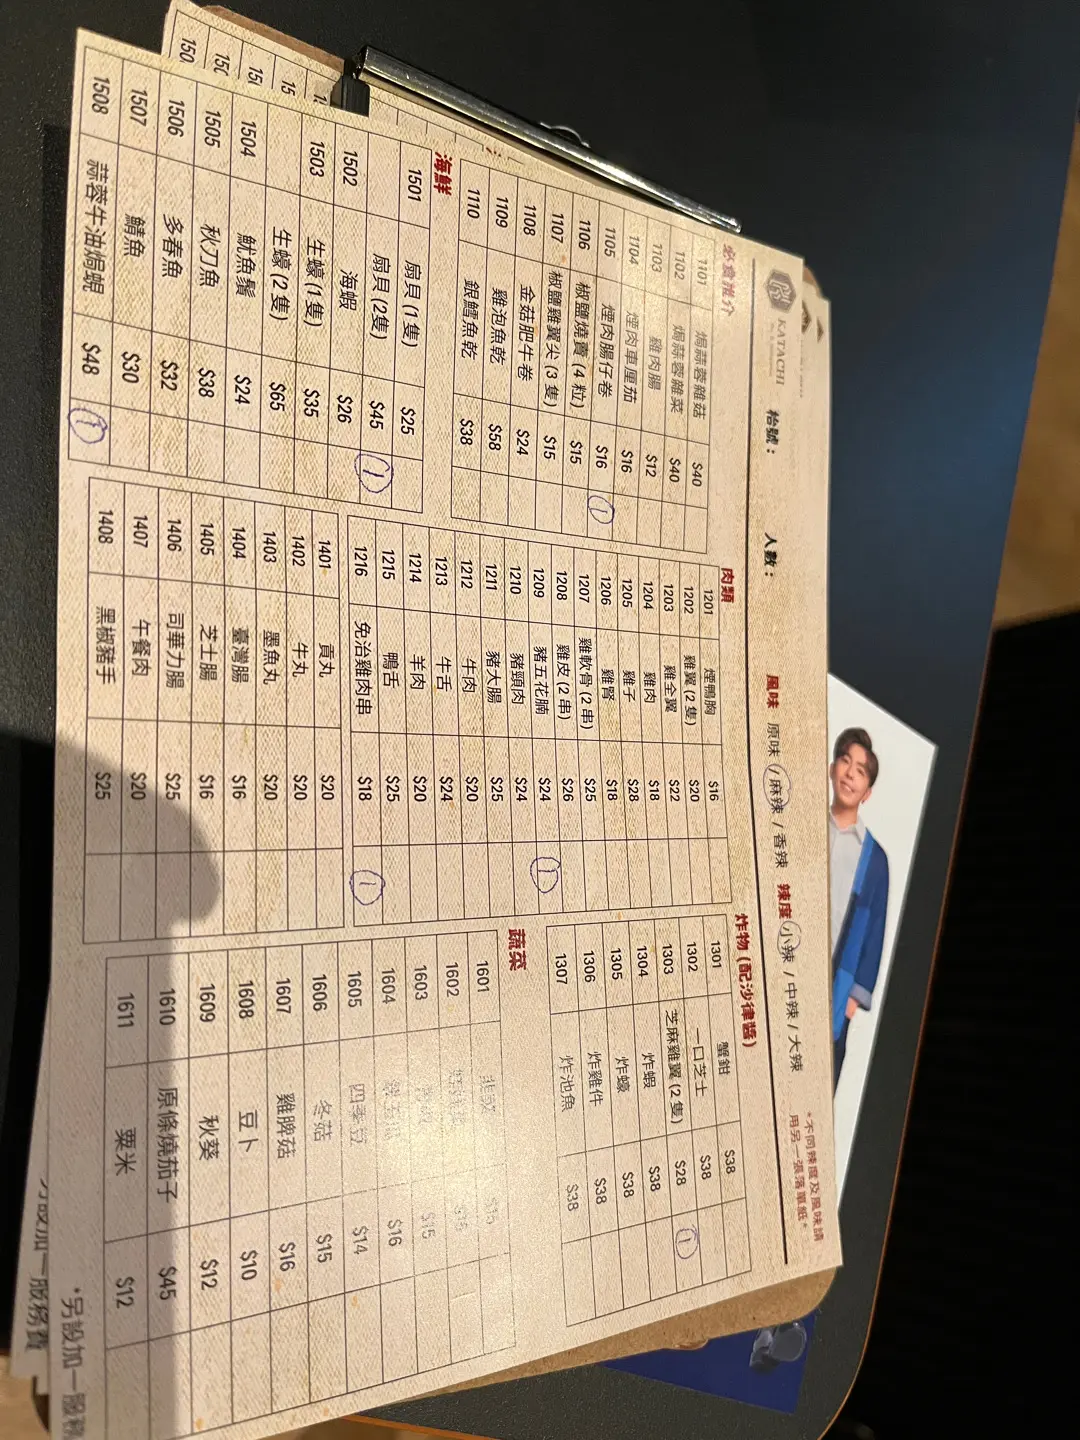 KATACHI 枱號： 人數： 風味 原味 / 麻辣 / 香辣 辣度 小辣 / 中辣 / 大辣
*不同辣度及風味請
用另一張落單紙*
必食推介
1101 焗蒜蓉雜菇 $40
1102 焗蒜蓉雜菜 $40
1103 雞肉腸 $12
1104 煙肉車厘茄 $16
1105 煙肉腸仔卷 $16 1
1106 椒鹽燒賣 (4 粒) $15
1107 椒鹽雞翼尖 (3 隻) $15
1108 金菇肥牛卷 $24
1109 雞泡魚乾 $58
1110 銀鱈魚乾 $38
海鮮
1501 扇貝 (1隻) $25
扇貝 (2隻) $45 1
1502 海蝦 $26
1503 生蠔 (1隻) $35
生蠔 (2隻) $65
1504 魷魚鬚 $24
1505 秋刀魚 $38
1506 多春魚 $32
1507 鯖魚 $30
1508 蒜蓉牛油焗蜆 $48 1
肉類
1201 煙鴨胸 $16
1202 雞翼 (2 隻) $20
1203 雞全翼 $22
1204 雞肉 $18
1205 雞子 $28
1206 雞腎 $18
1207 雞軟骨 (2 串) $25
1208 雞皮 (2 串) $26
1209 豬五花腩 $24 1
1210 豬頸肉 $24
1211 豬大腸 $25
1212 牛肉 $20
1213 牛舌 $24
1214 羊肉 $20
1215 鴨舌 $25
1216 免治雞肉串 $18 1
1401 貢丸 $20
1402 牛丸 $20
1403 墨魚丸 $20
1404 臺灣腸 $16
1405 芝士腸 $16
1406 司華力腸 $25
1407 午餐肉 $20
1408 黑椒豬手 $25
炸物 (配沙律醬)
1301 蟹鉗 $38
1302 一口芝士 $38
1303 芝麻雞翼 (2 隻) $28 1
1304 炸蝦 $38
1305 炸蠔 $38
1306 炸雞件 $38
1307 炸池魚 $38
蔬菜
1601 $15
1602 $15
1603 $15
1604 $16
1605 四季豆 $14
1606 冬菇 $15
1607 雞脾菇 $16
1608 豆卜 $10
1609 秋葵 $12
1610 原條燒茄子 $45
1611 粟米 $12
*另設加一服務
加一服務費